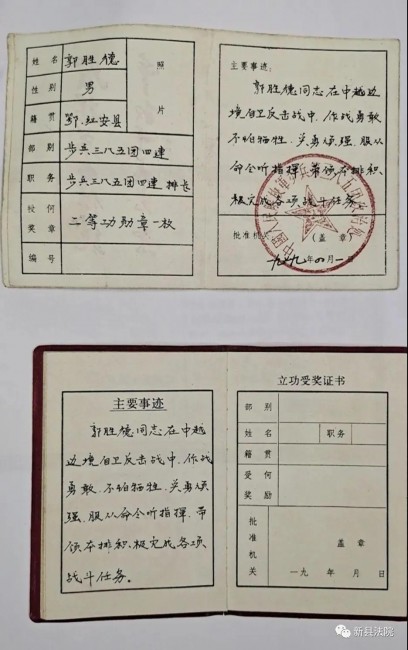 姓名 郭胜德 照片
性别 男
籍贯 鄂.红安县
部别 步兵三八五团四连
职务 步兵三八五团四连 排长
授何奖章 二等功勋章一枚
编号
主要事迹:
郭胜德同志在中越边
境自卫反击战中.作战勇敢
不怕牺牲.英勇顽强.服从
命令听指挥.带领本排积
极完成各项战斗任务.
批准机关 (盖章)
一九七九年四月一
主要事迹
郭胜德同志在中越
边境自卫反击战中.作战
勇敢.不怕牺牲.英勇顽
强.服从命令听指挥.带
领本排积极完成各项
战斗任务.
立功受奖证书
部别
姓名 职务
籍贯
受何奖励
批准机关 盖章
一九 年 月 日
新县法院